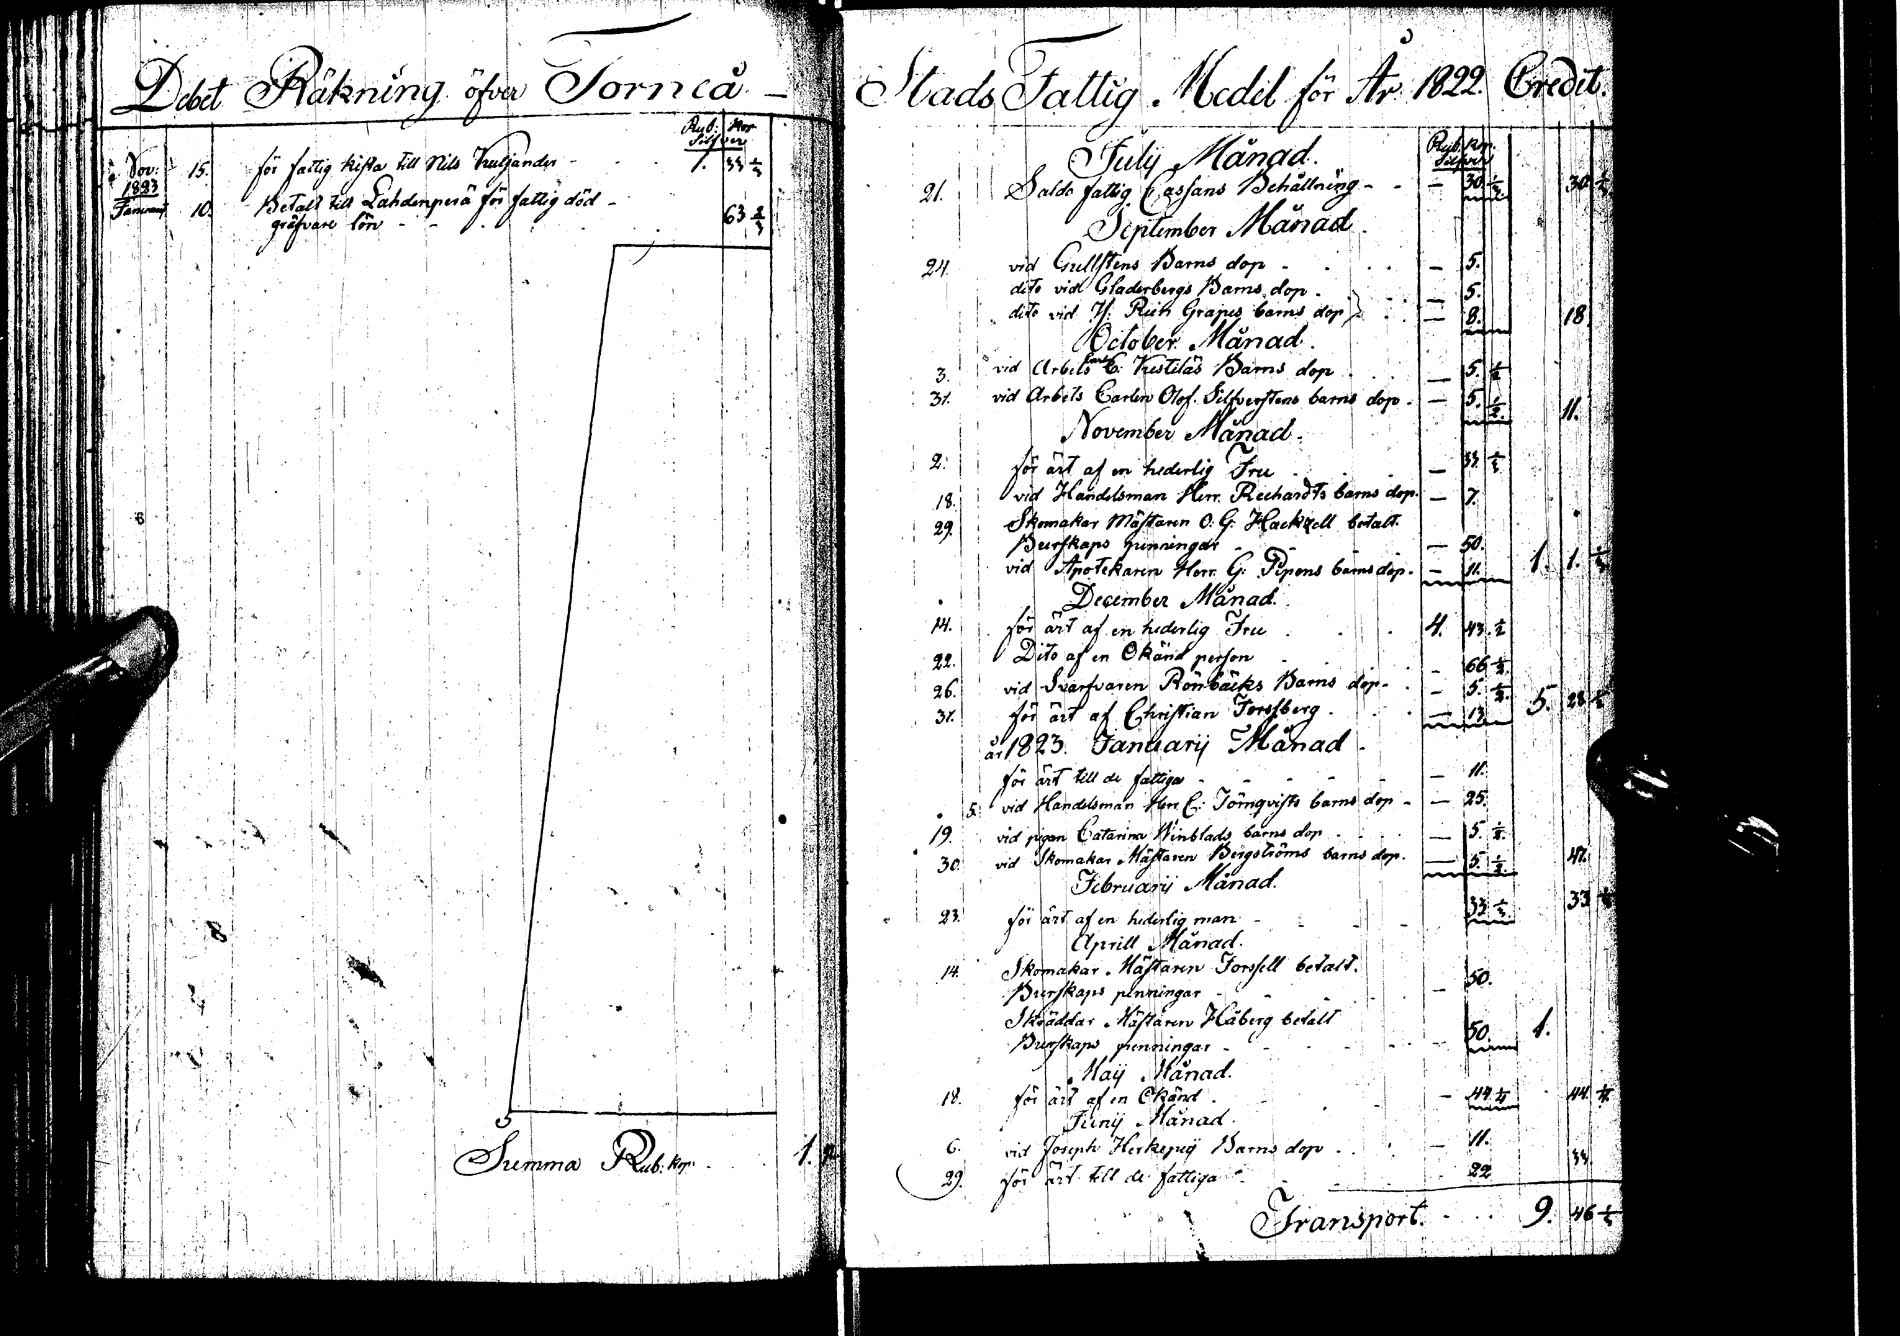 Debet Räkning öfver Torneå
Rub: Kop
Silfver
Nov: 15. för fattig kista till Nils 1. 33 1/3
1823
Januarij 10. Betalt till Lahdenperä för fattig död
gräfvare lön 63 2/3
Summa Rub: Kop: 1.
Stads Fattig Medel för År 1822. Credit.
Rub. Kop.
Silfver
July Månad.
21. Saldo fattig Cassans Behållning — 30. 30.
September Månad.
24. vid Gullstens Barns dop — 5.
dito vid Gladerbergs Barns dop — 5.
dito vid H: Grapes barns dop — 8. 18.
October Månad.
3. vid Arbets Karl E: Kestiläs Barns dop — 5. 1/2
31. vid Arbets Carlen Olof Silfverstens barns dop — 5. 1/2. 11.
November Månad.
2. för ärt af en hederlig Fru — 33. 1/3
18. vid Handelsman Herr Rechardts barns dop — 7.
29. Skomakar Mästaren O: G: Hackzell betalt
Burskaps penningar — 50.
vid Apotekaren Herr G: Pipons barns dop — 11. 1. 1. 1/3
December Månad.
14. för ärt af en hederlig Fru 4. 43. 1/2
22. Dito af en Okänd person — 66
26. vid Svarfvaren Rönbäcks Barns dop — 5.
31. för ärt af Christian Forssberg — 13. 5. 28
år 1823. Januarij Månad
för ärt till de fattiga — 11.
5. vid Handelsman Herr C: Törnqvists barns dop — 25.
19. vid pigan Catarina Winblads barns dop — 5. 1/2.
30. vid Skomakar Mästaren Bergströms barns dop — 5. 1/2. 47.
Februarij Månad.
23. för ärt af en hederlig man 33. 1/3 33.
Aprill Månad.
14. Skomakar Mästaren Forssell betalt
Burskaps penningar — 50.
Skräddar Mästaren Håberg betalt
Burskaps penningar 50. 1.
Maij Månad.
18. för ärt af en Okänd — 44. 44.
Junij Månad.
6. vid Joseph Herkepeij Barns dop — 11.
29. för ärt till de fattiga 22 33.
Transport. 9. 46